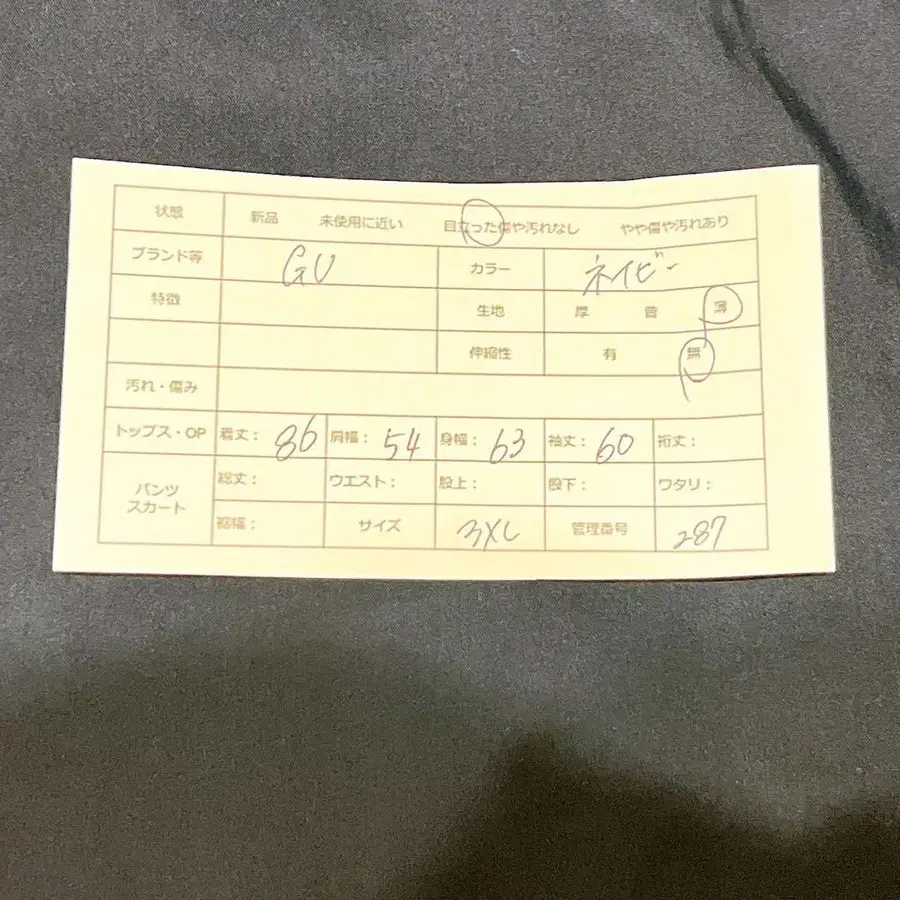 状態 新品 未使用に近い 目立った傷や汚れなし やや傷や汚れあり
ブランド等 GU カラー ネイビー
特徴 生地 厚 普 薄
伸縮性 有 無
汚れ・傷み
トップス・OP 着丈: 86 肩幅: 54 身幅: 63 袖丈: 60 裄丈:
パンツ 総丈: ウエスト: 股上: 股下: ワタリ:
スカート 裾幅: サイズ 3XL 管理番号 287